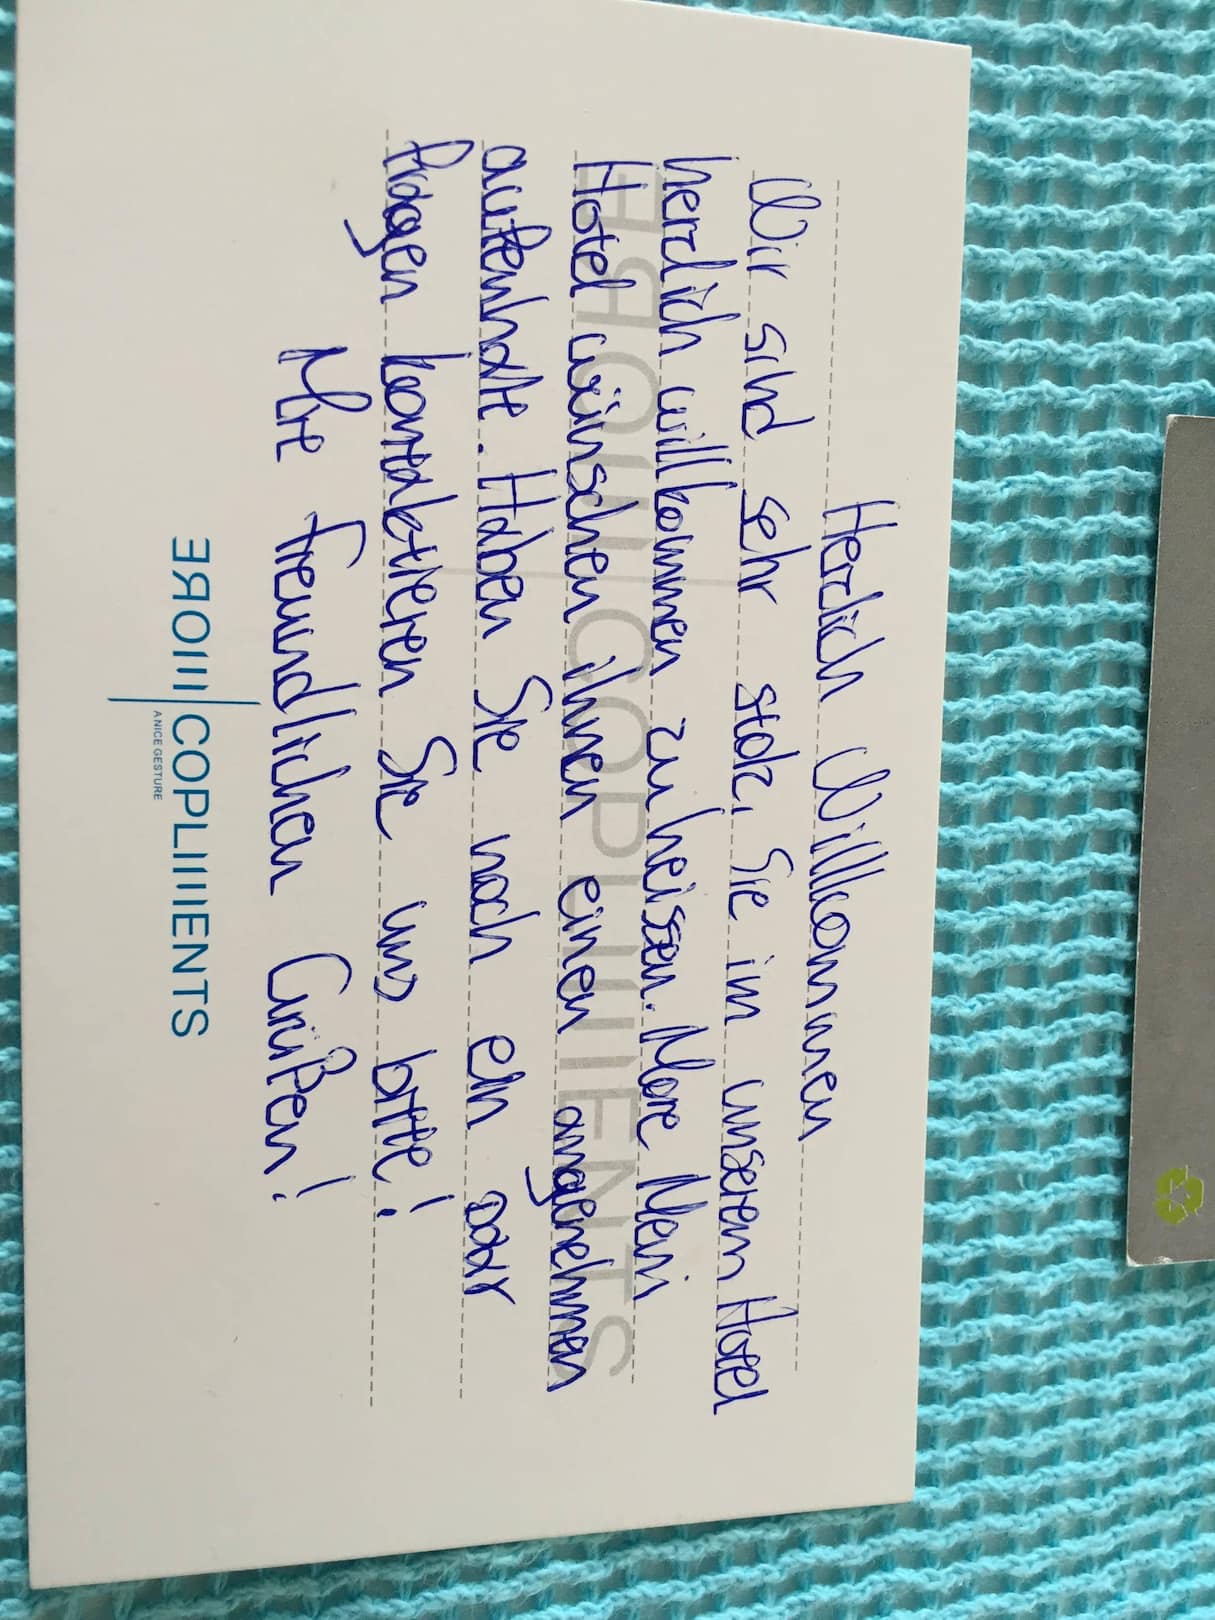 Herzlich Willkommen
Wir sind sehr stolz, Sie im unserem Hotel
herzlich willkommen zu heissen. More Meni
Hotel wünschen ihnen einen angenehmen
aufenhalte. Haben Sie noch ein paar
fragen kontaktieren Sie uns bitte!
Mit freundlichen Grüßen!
MORE COPLIMENTS
A NICE GESTURE
MORE COPLIMENTS